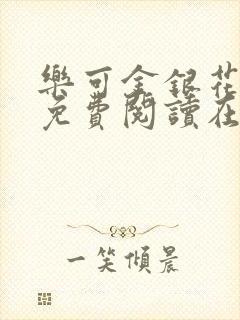 樂可金銀花
免費閱讀在
一笑傾晨